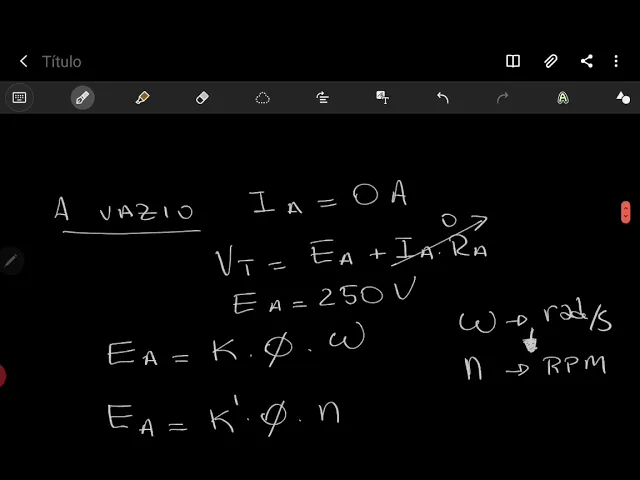 Título
A VAZIO I_A = 0 A
V_T = E_A + I_A . R_A 0
E_A = 250 V
E_A = K . ∅ . ω
ω → rad/s
n → RPM
E_A = K' . ∅ . n